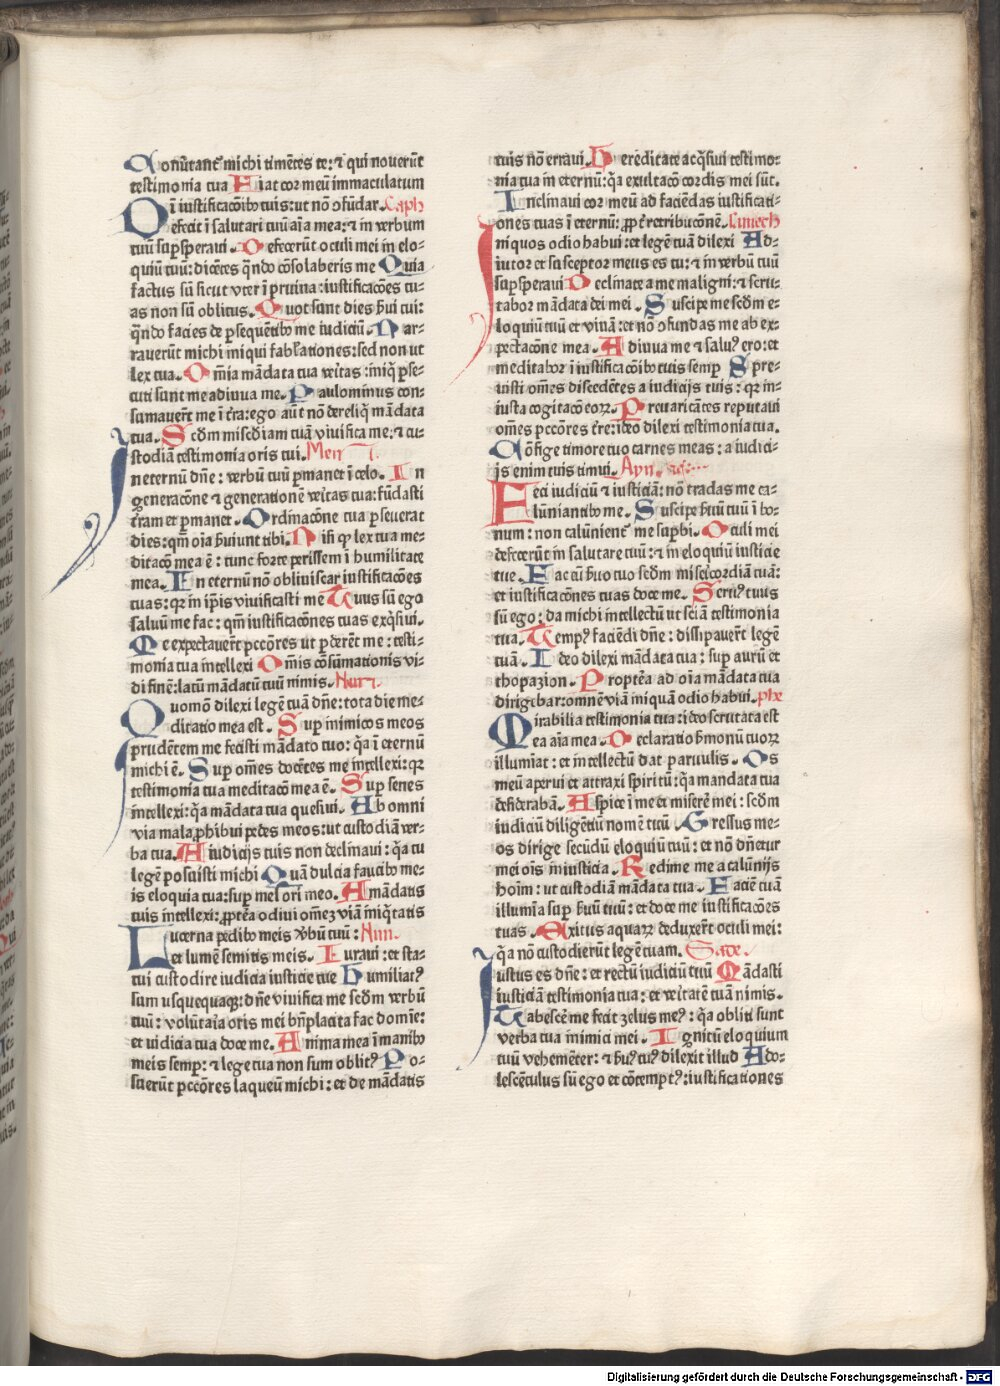 Conũtant᷒ michi timẽtes te: ⁊ qui noverũt
testimonia tua Fiat cor meũ immaculatum
ĩ iustificacõĩb⁹ tuis: ut nõ cõfũdar. Caph
Defecit ĩ salutari tuũ aĩa mea: ⁊ in verbum
tuũ suꝑsperavi. Defecerũt oculi mei in elo-
quiũ tuũ: dicẽtes qñdo cõsolaberis me Quia
factus sũ sicut uter ĩ pruina: iustificacões tu-
as non sũ oblitus. Quot sunt dies ẜvi tui:
qñdo facies de ꝑsequẽtib⁹ me iudiciũ. Nar-
raverũt michi iniqui fabl'ationes: sed non ut
lex tua. Omĩa mãdata tua vẽitas: iniq̃ ꝑse-
cuti sunt me adiuva me. Paulominus con-
sumaverũt me ĩ tr̃a: ego aut̃ nõ dereliq̃ mãdata
tua. Scdm miscdiam tuã vivifica me: ⁊ cu-
stodiã testimonia oris tui. Men
In eternũ dñe: verbũ tuũ ꝑmanet ĩ celo. In
generacõne ⁊ generationẽ vẽitas tua: fũdasti
t̃ram et ꝑmanet. Ordĩnacõne tua ꝑseverat
dies: qm̃ oĩa ẜviunt tibi. Nisi ꝙ lex tua me-
ditacõ mea ẽ: tunc forte perissem ĩ humilitate
mea. In eternũ nõ obliviscar iustificacões
tuas: qꝛ in ip̃is vivificasti me Tuus sũ ego
saluũ me fac: qm̃ iustificacões tuas exq̃sivi.
Me expectaverũt pccõres ut ꝑderẽt me: testi-
monia tua intellexi Omĩs cõsũmationis vi-
di finẽ: latũ mãdatũ tuũ nimis. Nun
Quomõ dilexi legẽ tuã dñe: tota die me-
ditatio mea est. Suꝑ inimicos meos
prudẽtem me fecisti mãdato tuo: q̃a ĩ eternũ
michi ẽ. Suꝑ omẽs docẽtes me intellexi: qꝛ
testimonia tua meditacõ mea ẽ. Suꝑ senes
intellexi: q̃a mãdata tua quesivi. Ab omni
via mala ꝓhibui pedes meos: ut custodiã ver-
ba tua. A iudicijs tuis non declinavi: q̃a tu
legẽ posuisti michi Quã dulcia faucib⁹ me-
is eloquia tua: suꝑ mel ori meo. A mãdatis
tuis intellexi: ꝓptẽa odivi omẽz viã iniq̃tatis
Lucerna pedib⁹ meis v̾bũ tuũ: Nun.
et lumẽ semitis meis. Iuravi: et sta-
tui custodire iudicia iusticie tue Humiliat⁹
sum usquequaqꝫ: dñe vivifica me scdm verbũ
tuũ: volũtaria oris mei bñplacita fac domĩe:
et iudicia tua doce me. Anima mea ĩ manib⁹
meis semꝑ: ⁊ lege tua non sum oblit⁹ Po-
suerũt pccõres laqueũ michi: et de mãdatis
tuis nõ erravi. Hereditate acq̃sivi testimo-
nia tua in eternũ: q̃a exultacõ cordis mei sũt.
Inclinavi cor meũ ad faciẽdas iustificati-
ones tuas ĩ eternũ: ꝓpt̃ retribucõnẽ. Samech
Iniquos odio habui: et legẽ tuã dilexi Ad-
iutor et susceptor meus es tu: ⁊ in verbũ tuũ
suꝑsperavi Declinate a me maligni: ⁊ scru-
tabor mãdata dei mei. Suscipe me scdm e-
loquiũ tuũ et vivã: et nõ cõfundas me ab ex-
pectacõne mea. Adiuva me ⁊ salu⁹ ero: et
meditabor ĩ iustificacõĩb⁹ tuis semꝑ Spre-
uisti omẽs discedẽtes a iudicijs tuis: qꝛ in-
iusta cogitacõ eoꝝ. Prevaricãtes reputavi
omẽs pccõres t̃re: ideo dilexi testimonia tua.
Cõfige timore tuo carnes meas: a iudici-
js enim tuis timui. Ayn.
Feci iudiciũ ⁊ iusticiã: nõ tradas me ca-
lũniantib⁹ me. Suscipe ẜvũ tuũ ĩ bo-
num: non calũnient᷒ me suꝑbi. Oculi mei
defecerũt in salutare tuũ: ⁊ in eloquiũ iusticie
tue. Fac cũ ẜvo tuo scdm misericordiã tuã:
et iustificacões tuas doce me. Serv⁹ tuus
sũ ego: da michi intellectũ ut sciã testimonia
tua. Temp⁹ faciẽdi dñe: dissipaver̃t legẽ
tuã. Ideo dilexi mãdata tua: suꝑ aurũ et
thopazion. Proptẽa ad oĩa mãdata tua
dirigebar: omnẽ viã iniquã odio habui. phe
Mirabilia testimonia tua: ideo scrutata est
ea aĩa mea. Declaratio ẜmonũ tuoꝝ
illumĩat: et intellectũ dat parvulis. Os
meũ aperui et attraxi spiritũ: q̃a mandata tua
desiderabã. Aspice ĩ me et miserẽ mei: scdm
iudiciũ diligentiũ nomẽ tuũ. Gressus me-
os dirige secũdũ eloquiũ tuũ: et nõ dñetur
mei oĩs iniusticia. Redime me a calũnijs
hoĩm: ut custodiã mãdata tua. Faciẽ tuã
illumĩa suꝑ ẜvũ tuũ: et doce me iustificacões
tuas. Exitus aquaꝝ deduxer̃t oculi mei:
q̃a nõ custodierũt legẽ tuam. Sade.
Iustus es dñe: et rectũ iudiciũ tuũ Mãdasti
iusticiã testimonia tua: et vẽitatẽ tuã nimis.
Tabescẽ me fecit zelus me⁹: q̃a obliti sunt
verba tua inimici mei. Ignitũ eloquium
tuũ vehemẽter: ⁊ ẜv⁹ tu⁹ dilexit illud Ado-
lescẽtulus sũ ego et cõtempt⁹: iustificationes
Digitalisierung gefördert durch die Deutsche Forschungsgemeinschaft - DFG